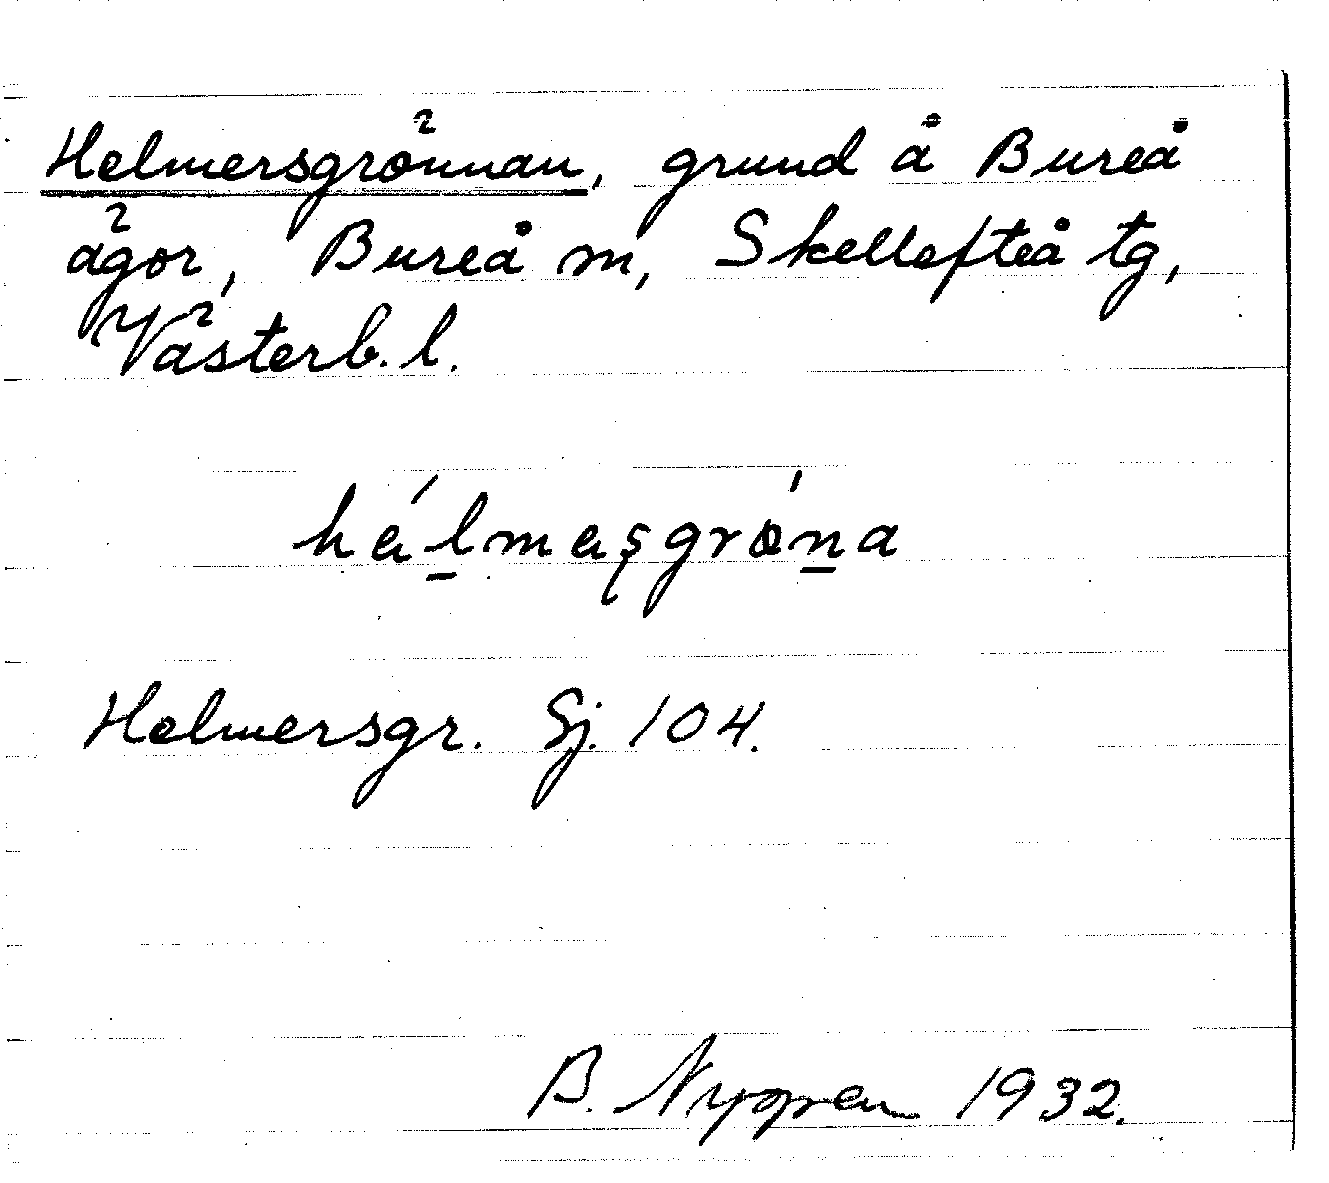 Helmersgrönnan, grund å Bureå
ägor, Bureå m, Skellefteå tg,
Västerb. l.
Helmersgr. Sj. 104.
B. Nygren 1932.